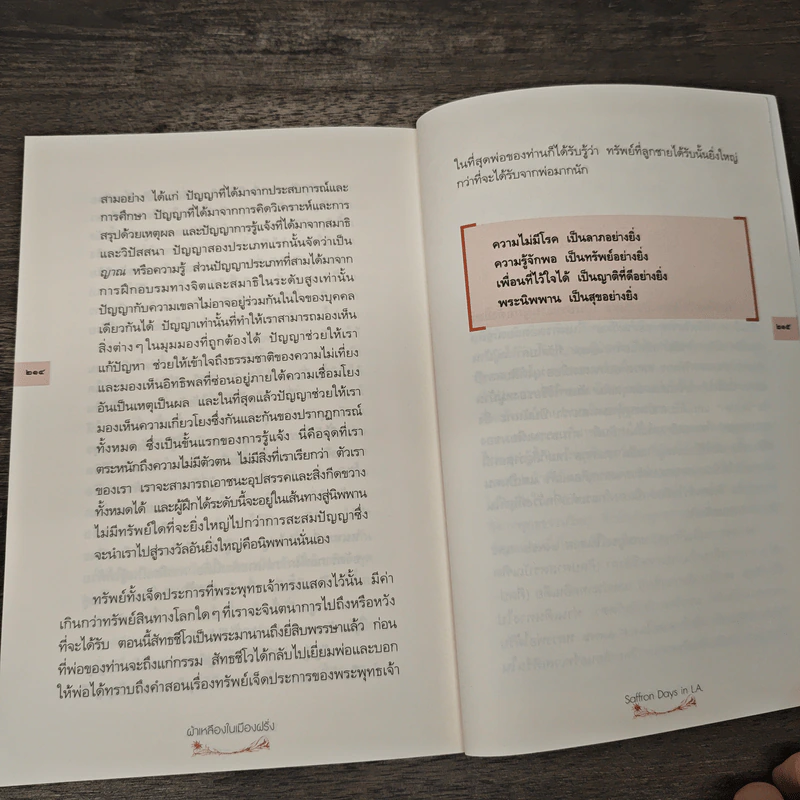 สามอย่าง ได้แก่ ปัญญาที่ได้มาจากประสบการณ์และ
การศึกษา ปัญญาที่ได้มาจากการคิดวิเคราะห์และการ
สรุปด้วยเหตุผล และปัญญาการรู้แจ้งที่ได้มาจากสมาธิ
และวิปัสสนา ปัญญาสองประเภทแรกนั้นจัดว่าเป็น
ญาณ หรือความรู้ ส่วนปัญญาประเภทที่สามได้มาจาก
การฝึกอบรมทางจิตและสมาธิในระดับสูงเท่านั้น
ปัญญากับความเขลาไม่อาจอยู่ร่วมกันในใจของบุคคล
เดียวกันได้ ปัญญาเท่านั้นที่ทำให้เราสามารถมองเห็น
สิ่งต่างๆ ในมุมมองที่ถูกต้องได้ ปัญญาช่วยให้เรา
แก้ปัญหา ช่วยให้เข้าใจถึงธรรมชาติของความไม่เที่ยง
และมองเห็นอิทธิพลที่ซ่อนอยู่ภายใต้ความเชื่อมโยง
อันเป็นเหตุเป็นผล และในที่สุดแล้วปัญญาช่วยให้เรา
มองเห็นความเกี่ยวโยงซึ่งกันและกันของปรากฏการณ์
ทั้งหมด ซึ่งเป็นขั้นแรกของการรู้แจ้ง นี่คือจุดที่เรา
ตระหนักถึงความไม่มีตัวตน ไม่มีสิ่งที่เราเรียกว่า ตัวเรา
ของเรา เราจะสามารถเอาชนะอุปสรรคและสิ่งกีดขวาง
ทั้งหมดได้ และผู้ฝึกได้ระดับนี้จะอยู่ในเส้นทางสู่นิพพาน
ไม่มีทรัพย์ใดที่จะยิ่งใหญ่ไปกว่าการสะสมปัญญาซึ่ง
จะนำเราไปสู่รางวัลอันยิ่งใหญ่คือนิพพานนั่นเอง
ทรัพย์ทั้งเจ็ดประการที่พระพุทธเจ้าทรงแสดงไว้นั้น มีค่า
เกินกว่าทรัพย์สินทางโลกใดๆ ที่เราจะจินตนาการไปถึงหรือหวัง
ที่จะได้รับ ตอนนี้สัทธชีโวเป็นพระมานานถึงยี่สิบพรรษาแล้ว ก่อน
ที่พ่อของท่านจะถึงแก่กรรม สัทธชีโวได้กลับไปเยี่ยมพ่อและบอก
ให้พ่อได้ทราบถึงคำสอนเรื่องทรัพย์เจ็ดประการของพระพุทธเจ้า
๒๑๔
ผ้าเหลืองในเมืองฝรั่ง
ในที่สุดพ่อของท่านก็ได้รับรู้ว่า ทรัพย์ที่ลูกชายได้รับนั้นยิ่งใหญ่
กว่าที่จะได้รับจากพ่อมากนัก
ความไม่มีโรค เป็นลาภอย่างยิ่ง
ความรู้จักพอ เป็นทรัพย์อย่างยิ่ง
เพื่อนที่ไว้ใจได้ เป็นญาติที่ดีอย่างยิ่ง
พระนิพพาน เป็นสุขอย่างยิ่ง
๒๑๕
Saffron Days in L.A.